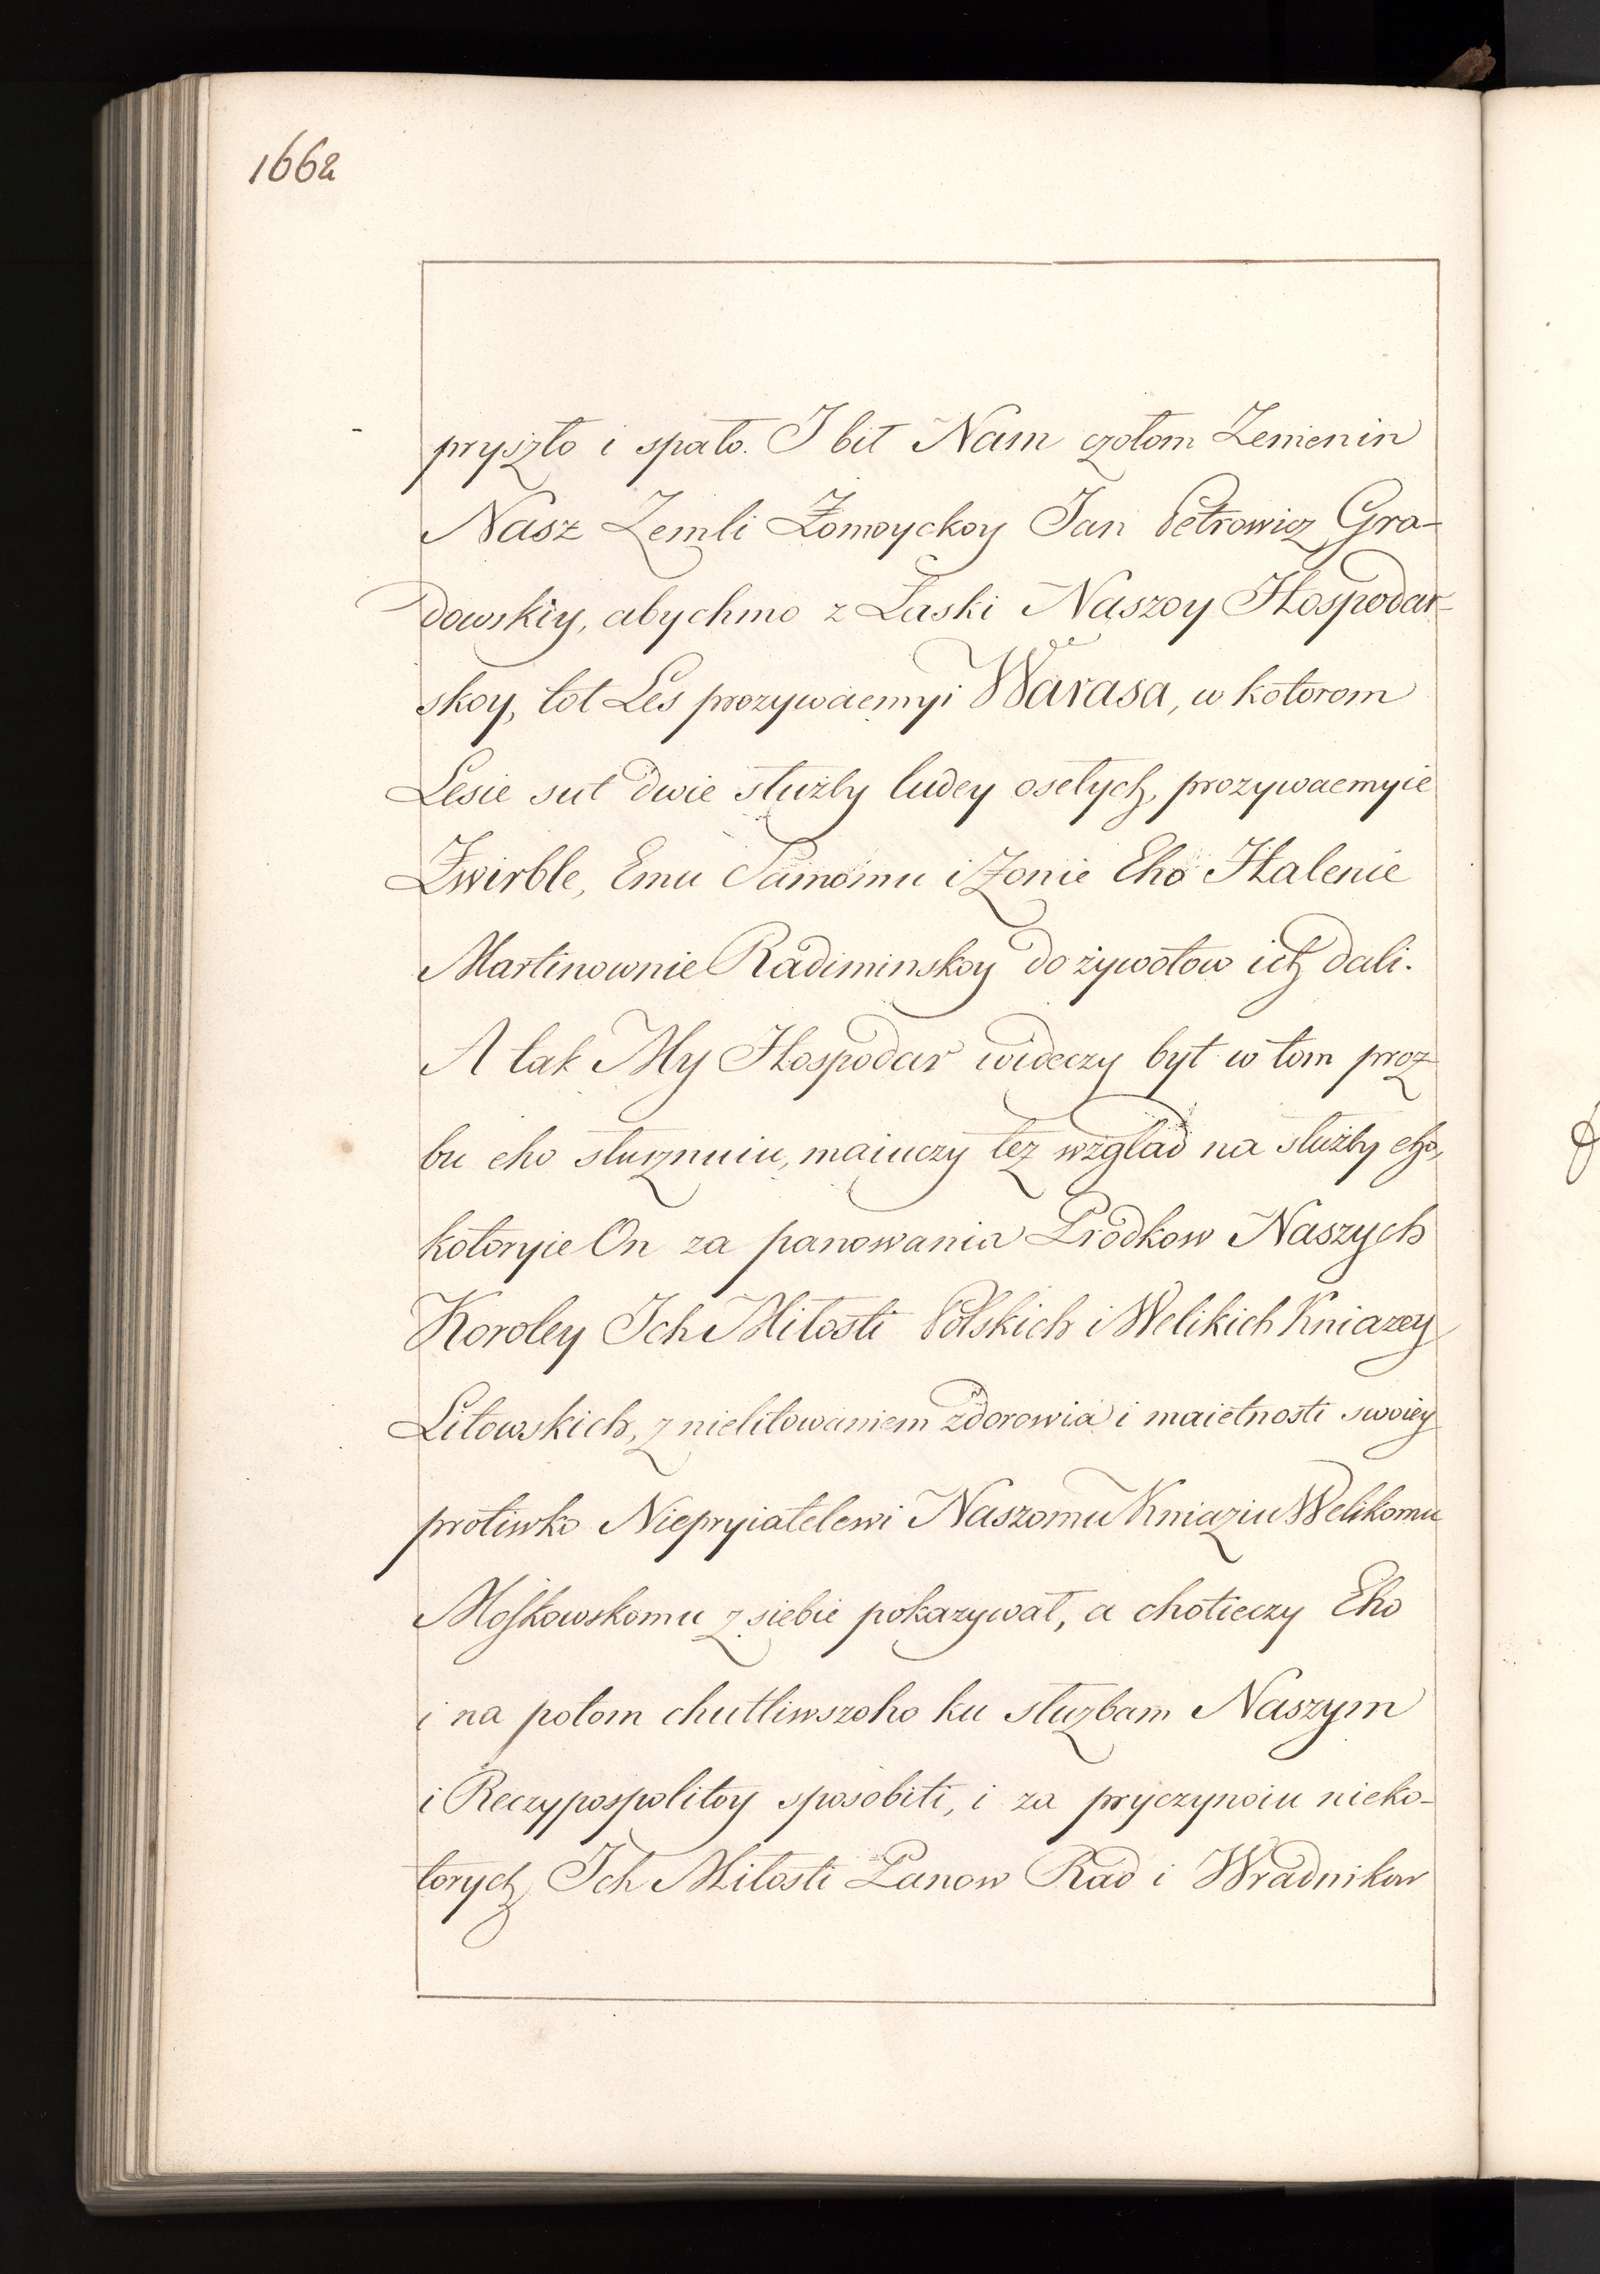 1662
pryszło i spało. I bił Nam czołom Zemenin
Nasz Zemli Żomoyckoy Jan Petrowicz Gra-
dowskiy, abychmo z Łaski Naszoy Hospodar-
skoy, tot Les prozywaemyi Warasa, w kotorom
Lesie sut dwie służby ludey osełych, prozywaemyie
Żwirble, Emu Samomu i Żonie Eho Halenie
Martinownie Radiminskoy do żywotow ich dali.
A tak My Hospodar wideczy być w tom proz
bu eho słusznuiu, maiuczy też wzglad na służby eho,
kotoryie On za panowania Prodkow Naszych
Koroley Ich Miłosti Polskich i Welikich Kniazey
Litowskich, z nielitowaniem zdorowia i maietnosti swoiey
protiwko Niepryiatelewi Naszomu Kniaziu Welikomu
Moskowskomu z siebie pokazywał, a chotieczy Eho
i na potom chutliwszoho ku służbam Naszym
i Reczypospolitoy sposobiti, i za pryczynoiu nieko-
torych Ich Miłosti Panow Rad i Wradnikow